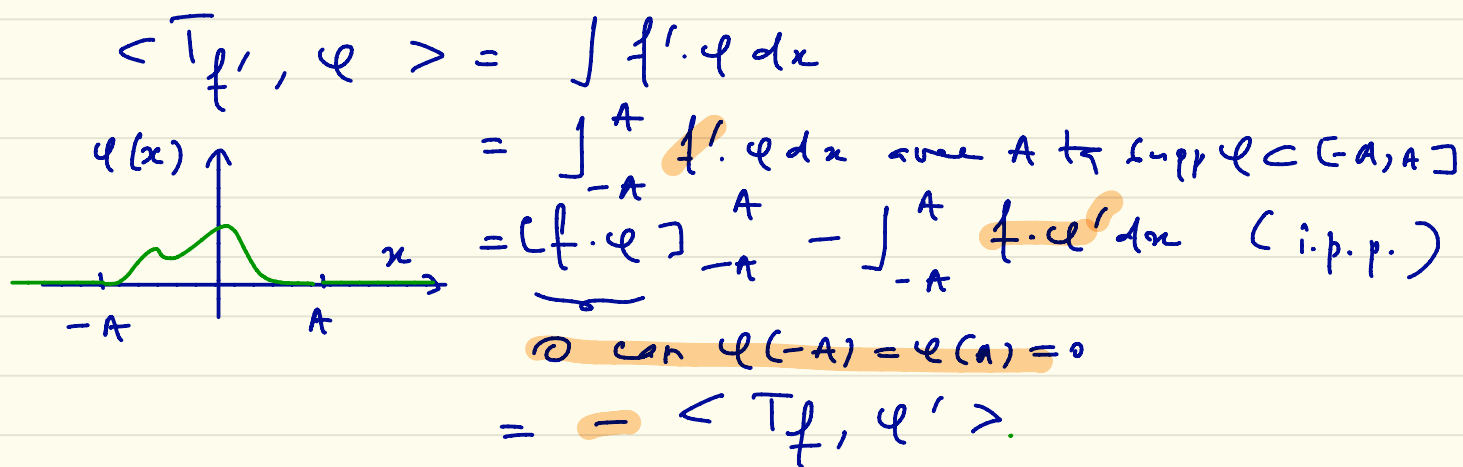 < T_f', φ > = ∫ f'. φ dx
= ∫_{-A}^{A} f'. φ dx avec A tq supp φ ⊂ [-A, A]
φ(x)
= [f.φ]_{-A}^{A} - ∫_{-A}^{A} f.φ' dx (i.p.p.)
x
-A A
0 car φ(-A) = φ(A) = 0
= - < T_f, φ' >.